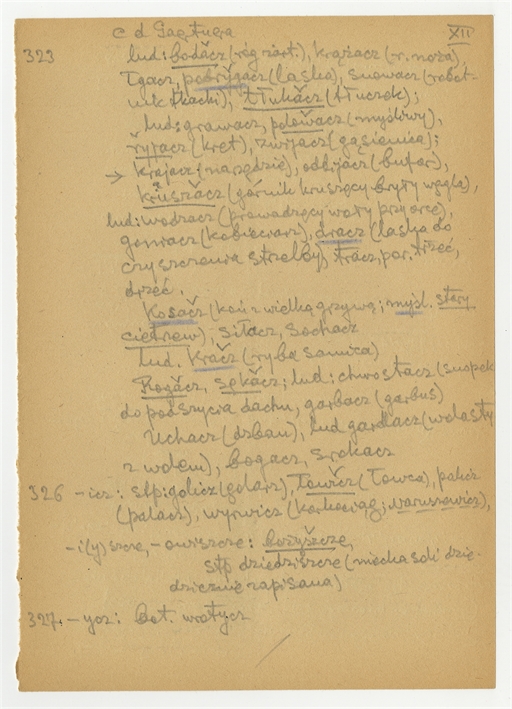 c d Gaertnera XII
323 lud: bodācz (róg żart.), krążacz (r. noża),
łgacz, pobrýgacz (laska), snowacz (robot-
nik tkacki), tłukăcz (tłuczek);
lud: grawacz, polowacz (myśliwy),
ryjăcz (kret), zwijacz (gąsienica);
→ krajacz (narzędzie), odbijacz (bufor),
krúszăcz (górnik kruszący bryły węgla),
lud: wodzacz (prowadzący woły przy orce),
goniacz (kobieciarz), dracz (laska do
czyszczenia strzelby), tracz, por. trzeć,
drzeć.
Kosăcz (koń z wielką grzywą; myśl. stary
cietrzew). Siłacz, Sochacz
lud. Krăcz (ryba samica)
Rogăcz, sękăcz; lud: chwostacz (snopek
do podszycia dachu, garbacz (garbus)
Uchacz (dzban), lud gardlacz (wolasty
z wolem), bogacz, srokacz
326 –icz: stp: golicz (golarz), łowicz (łowca), palicz
(palacz), wyrwicz (korkociąg; Naruszewicz),
–i(y)szcze, –owiszcze: bożyszcze,
stp dziedziszcze (miecha soli dzie-
dzicznie zapisana)
327. –ycz: Bot. wrotycz